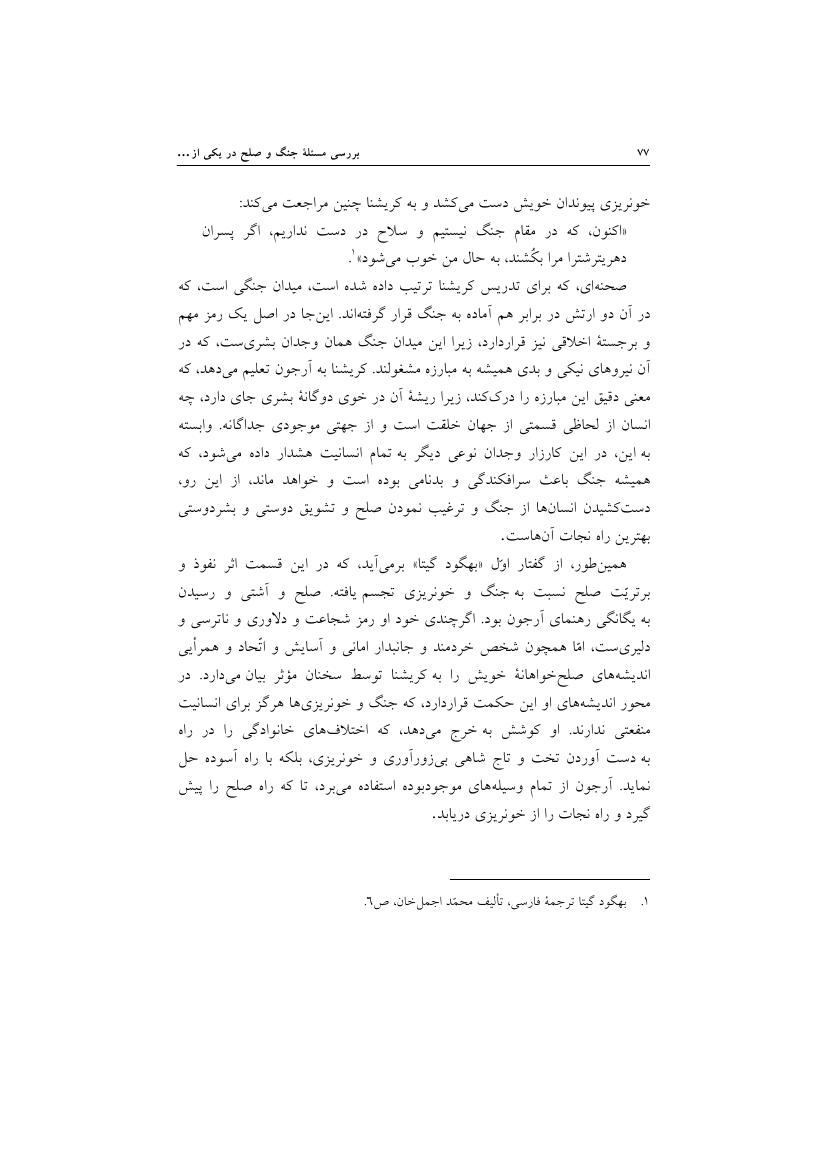 ۷۷ بررسی مسئلهٔ جنگ و صلح در یکی از ...
خونریزی پیوندان خویش دست می‌کشد و به کریشنا چنین مراجعت می‌کند:
«اکنون، که در مقام جنگ نیستیم و سلاح در دست نداریم، اگر پسران
دهریترشترا مرا بکُشند، به حال من خوب می‌شود»۱.
صحنه‌ای، که برای تدریس کریشنا ترتیب داده شده است، میدان جنگی است، که
در آن دو ارتش در برابر هم آماده به جنگ قرار گرفته‌اند. این‌جا در اصل یک رمز مهم
و برجستهٔ اخلاقی نیز قراردارد، زیرا این میدان جنگ همان وجدان بشری‌ست، که در
آن نیروهای نیکی و بدی همیشه به مبارزه مشغولند. کریشنا به آرجون تعلیم می‌دهد، که
معنی دقیق این مبارزه را درک‌کند، زیرا ریشهٔ آن در خوی دوگانهٔ بشری جای دارد، چه
انسان از لحاظی قسمتی از جهان خلقت است و از جهتی موجودی جداگانه. وابسته
به این، در این کارزار وجدان نوعی دیگر به تمام انسانیت هشدار داده می‌شود، که
همیشه جنگ باعث سرافکندگی و بدنامی بوده است و خواهد ماند، از این رو،
دست‌کشیدن انسان‌ها از جنگ و ترغیب نمودن صلح و تشویق دوستی و بشردوستی
بهترین راه نجات آن‌هاست.
همین‌طور، از گفتار اوّل «بهگود گیتا» برمی‌آید، که در این قسمت اثر نفوذ و
برتریّت صلح نسبت به جنگ و خونریزی تجسم یافته. صلح و آشتی و رسیدن
به یگانگی رهنمای آرجون بود. اگرچندی خود او رمز شجاعت و دلاوری و ناترسی و
دلیری‌ست، امّا همچون شخص خردمند و جانبدار امانی و آسایش و اتّحاد و همرأیی
اندیشه‌های صلح‌خواهانهٔ خویش را به کریشنا توسط سخنان مؤثر بیان می‌دارد. در
محور اندیشه‌های او این حکمت قراردارد، که جنگ و خونریزی‌ها هرگز برای انسانیت
منفعتی ندارند. او کوشش به خرج می‌دهد، که اختلاف‌های خانوادگی را در راه
به دست آوردن تخت و تاج شاهی بی‌زورآوری و خونریزی، بلکه با راه آسوده حل
نماید. آرجون از تمام وسیله‌های موجودبوده استفاده می‌برد، تا که راه صلح را پیش
گیرد و راه نجات را از خونریزی دریابد.
۱. بهگود گیتا ترجمهٔ فارسی، تألیف محمّد اجمل‌خان، ص۶.